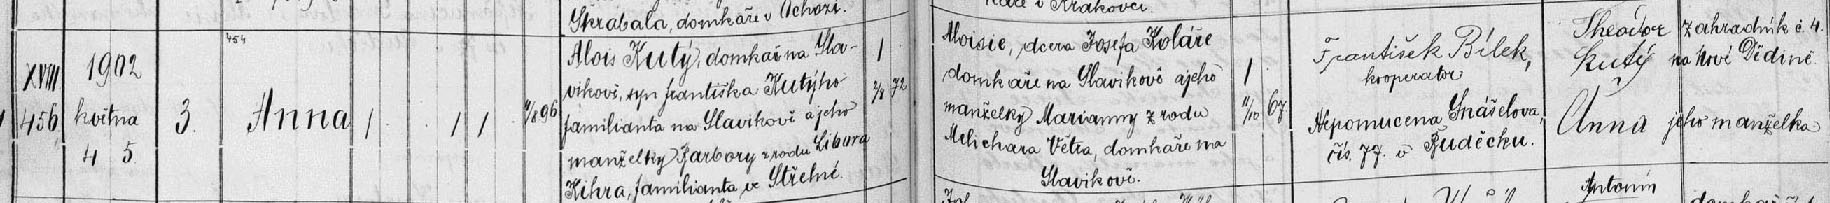 Skrabala, domkáře v Ochozi.
káře v Krakovci
454
XVIII
456
1902
května
4 5.
3.
Anna
1
1 1
896
Alois Kutý, domkář na Sla-
víkově, syn Františka Kutýho
familianta na Slavíkově a jeho
manželky Barbory z rodu Libora
Kihra, familianta ve Střelné.
1
72
Aloisie, dcera Josefa Koláře
domkáře na Slavíkově a jeho
manželky Marianny z rodu
Melichara Vétra, domkáře na
Slavíkově.
1
67
František Bílek,
kooperator
Nepomucena Snášelova,
čís. 77. v Budečku.
Theodor
Kutý
zahradník č. 4.
na Nové Dědině
Anna jeho manželka
Antonín